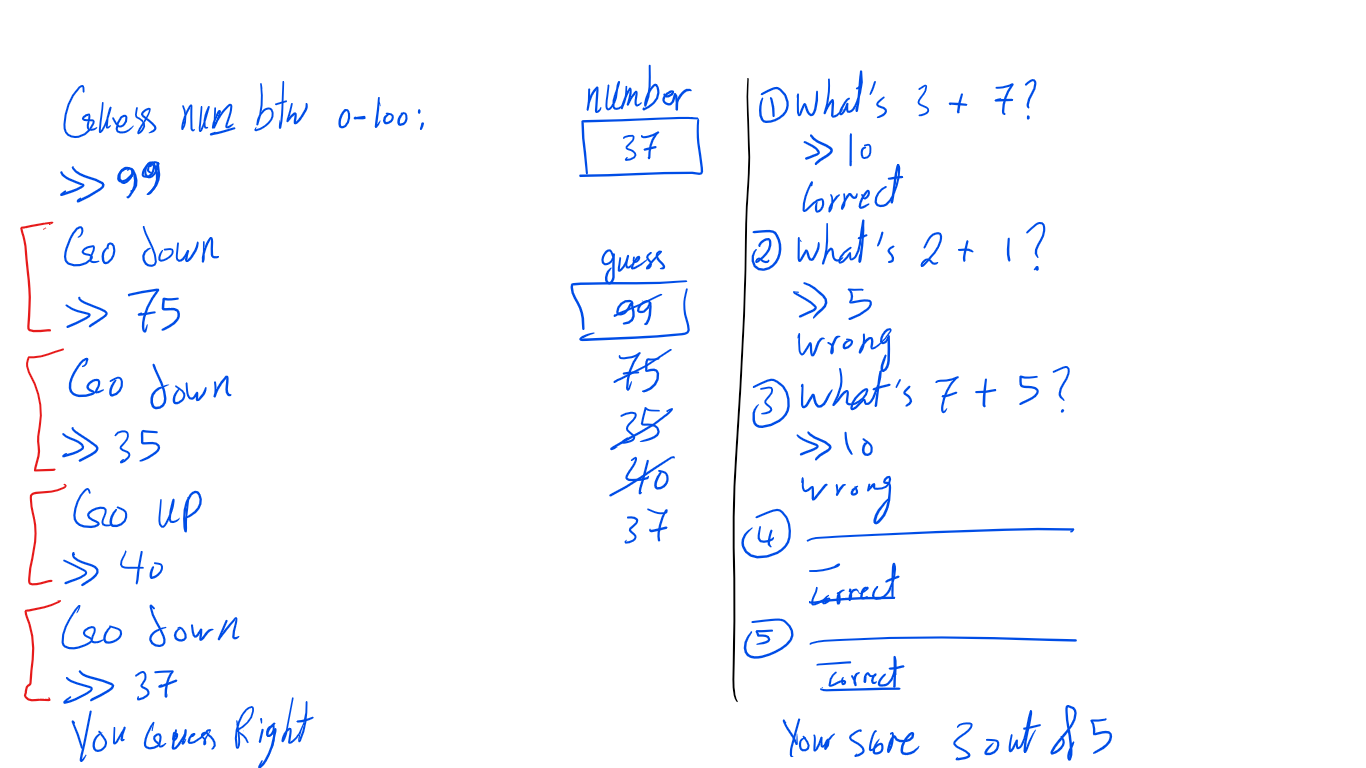 Guess num btw 0-100:
>> 99
Go down
>> 75
Go down
>> 35
Go up
>> 40
Go down
>> 37
You Guess Right
number
37
guess
99
75
35
40
37
① What's 3 + 7?
>> 10
Correct
② What's 2 + 1?
>> 5
wrong
③ What's 7 + 5?
>> 10
wrong
④
Correct
⑤
Correct
Your score 3 out of 5